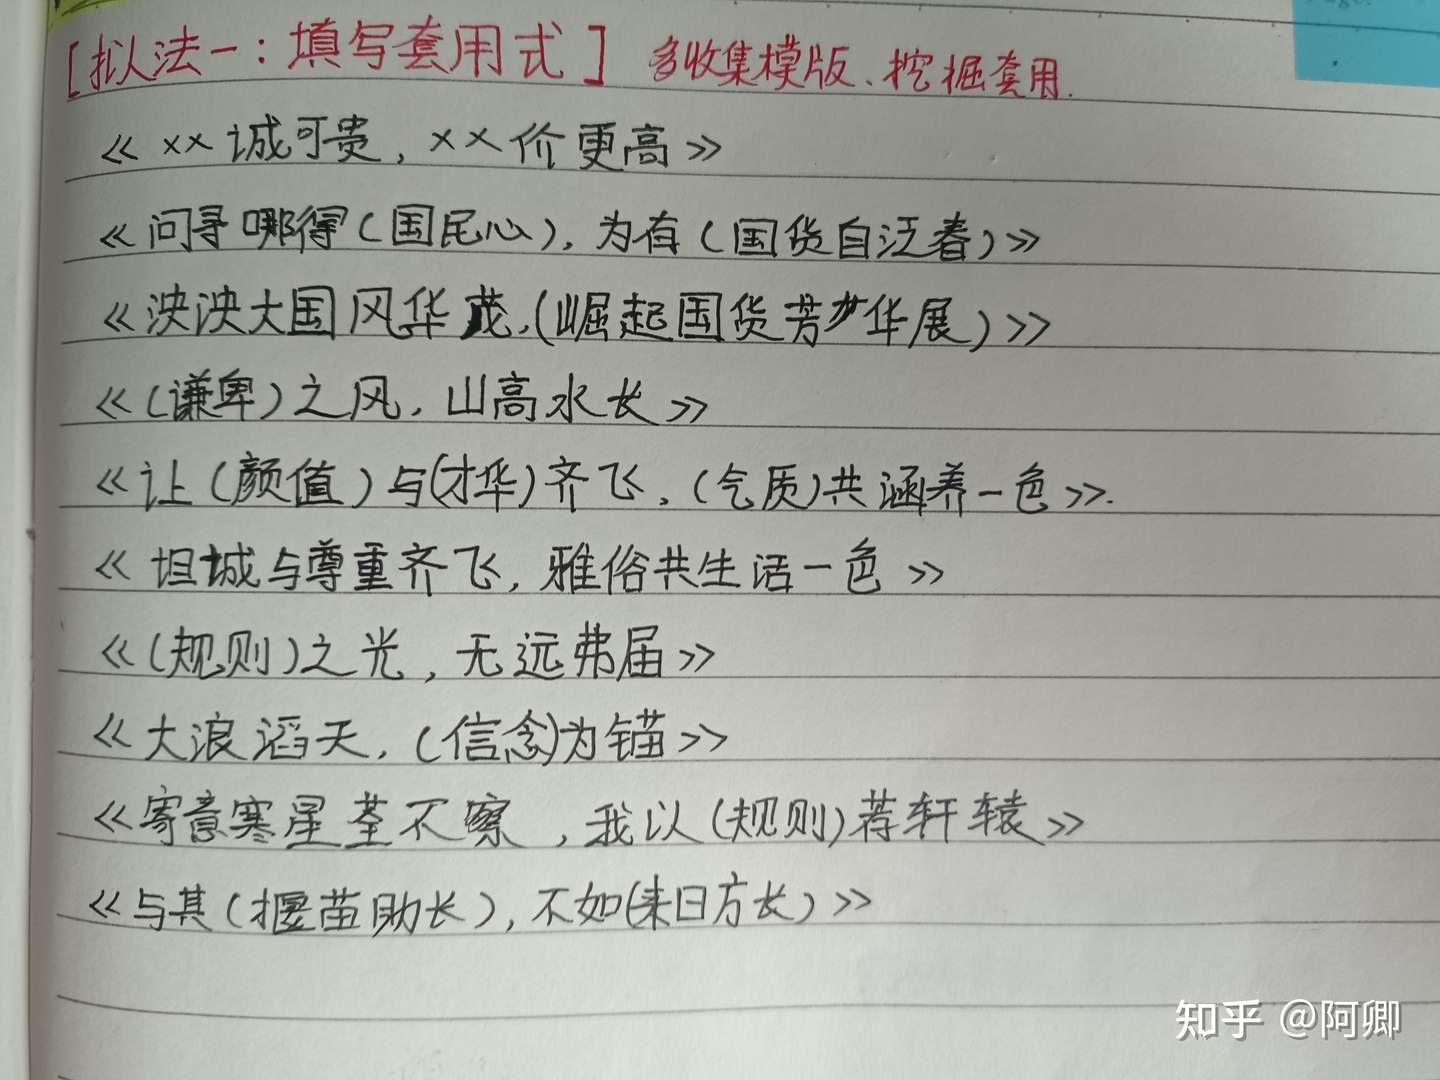 [拟法一：填写套用式] 多收集模版、挖掘套用.
《××诚可贵，××价更高》
《问寻哪得(国民心)，为有(国货自泛春)》
《泱泱大国风华茂,(崛起国货芳华展)》
《(谦卑)之风，山高水长》
《让(颜值)与(才华)齐飞，(气质)共涵养一色》.
《坦城与尊重齐飞，雅俗共生活一色》
《(规则)之光，无远弗届》
《大浪滔天，(信念)为锚》
《寄意寒星荃不察，我以(规则)荐轩辕》
《与其(揠苗助长)，不如(来日方长)》
知乎 @阿卿